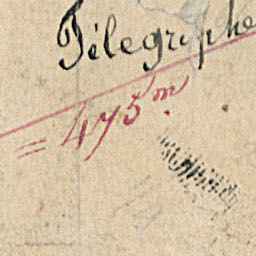 Télegraphe
= 475 m.